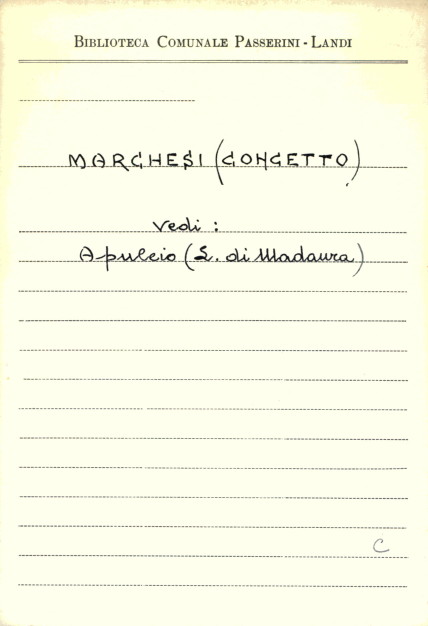 BIBLIOTECA COMUNALE PASSERINI - LANDI
MARCHESI (CONCETTO)
Vedi :
Apuleio (L. di Madaura)
C